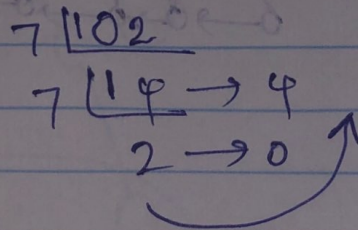 7 | 102
7 | 14 → 4
2 → 0